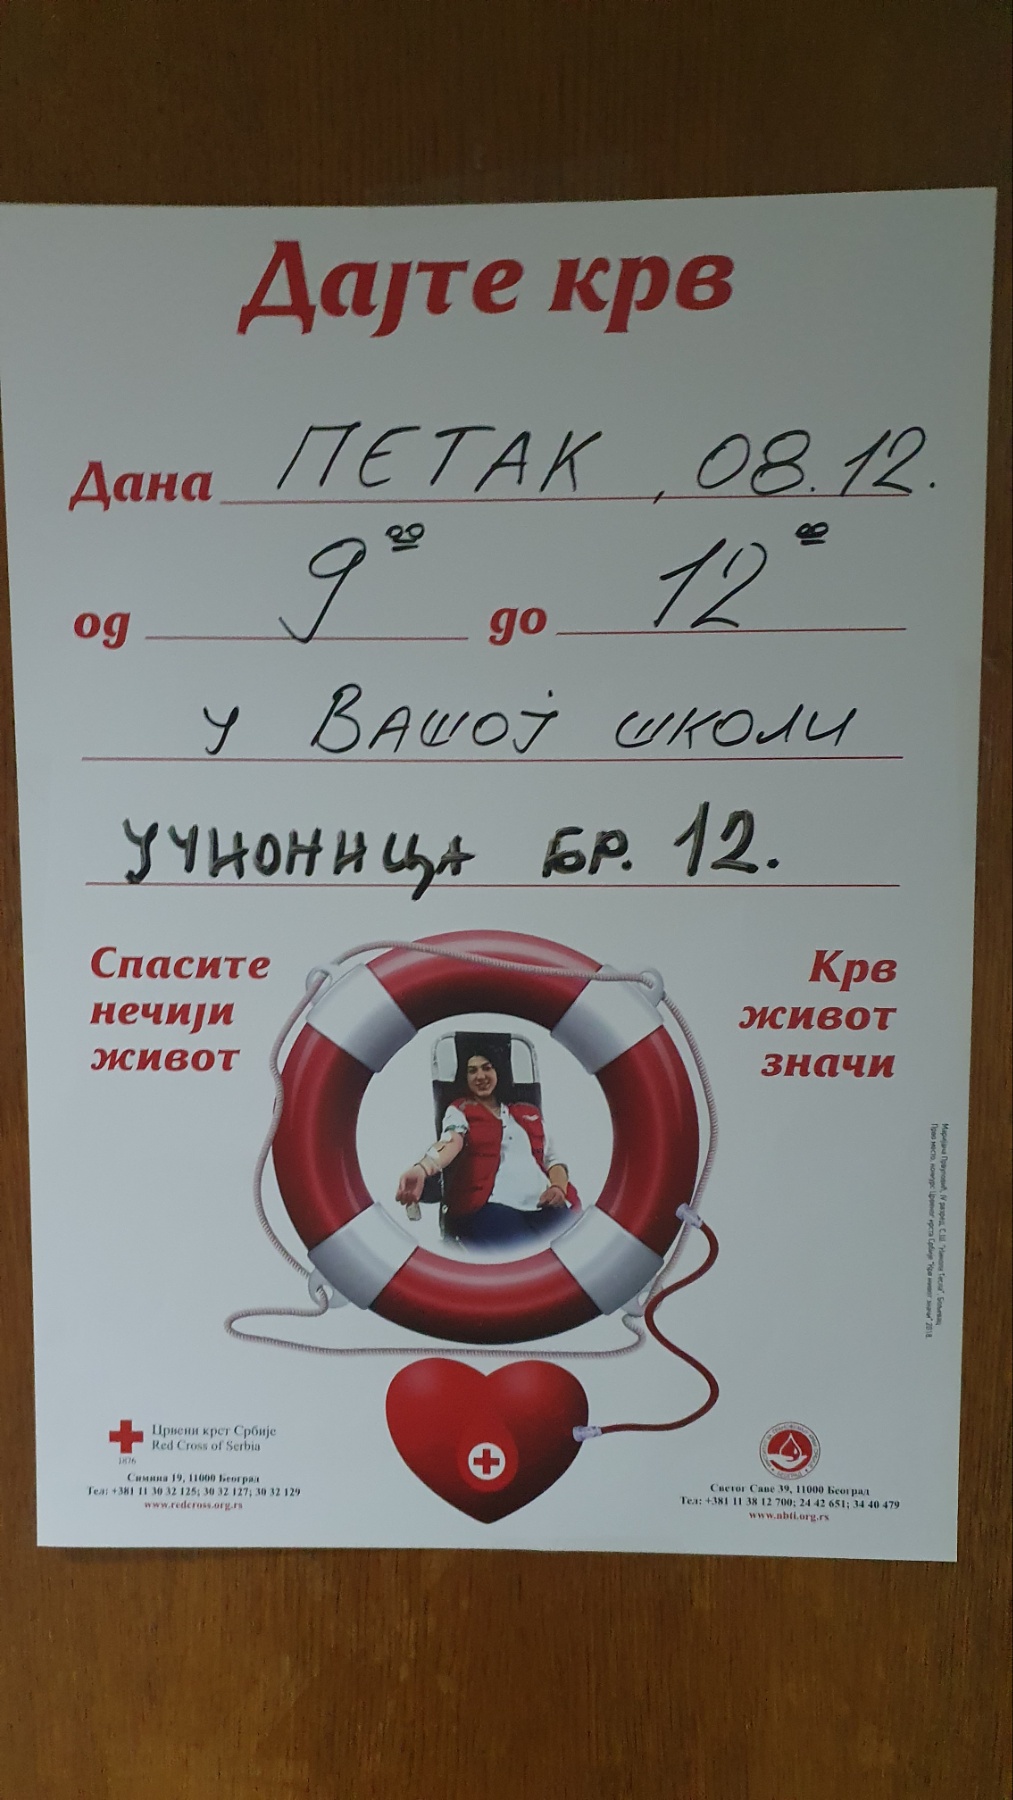 Дајте крв
Дана ПЕТАК, 08.12.
од 9 00 до 12 00
у ВАШОЈ ШКОЛИ
УЧИОНИЦА БР. 12.
Спасите
нечији
живот
Крв
живот
значи
Црвени крст Србије
Red Cross of Serbia
1876
Симина 19, 11000 Београд
Тел: +381 11 30 32 125; 30 32 127; 30 32 129
www.redcross.org.rs
Светог Саве 39, 11000 Београд
Тел: +381 11 38 12 700; 24 42 651; 34 40 479
www.nbti.org.rs
IV разред, С.Ш. "Никола Тесла", Бољевац
Прво место, конкурс Црвеног крста Србије "Крв живот значи" 2018.